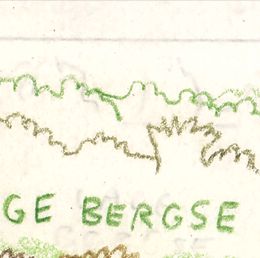 GE BERGSE